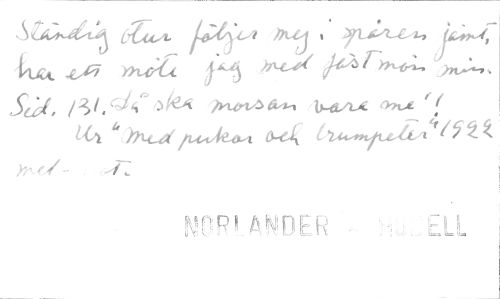 Ständig otur följer mej i spåren jämt,
har ett möte jag med fästmön min.
Sid. 131. Då ska morsan vara me'!
Ur "Med pukor och trumpeter" 1922
med
NORLANDER